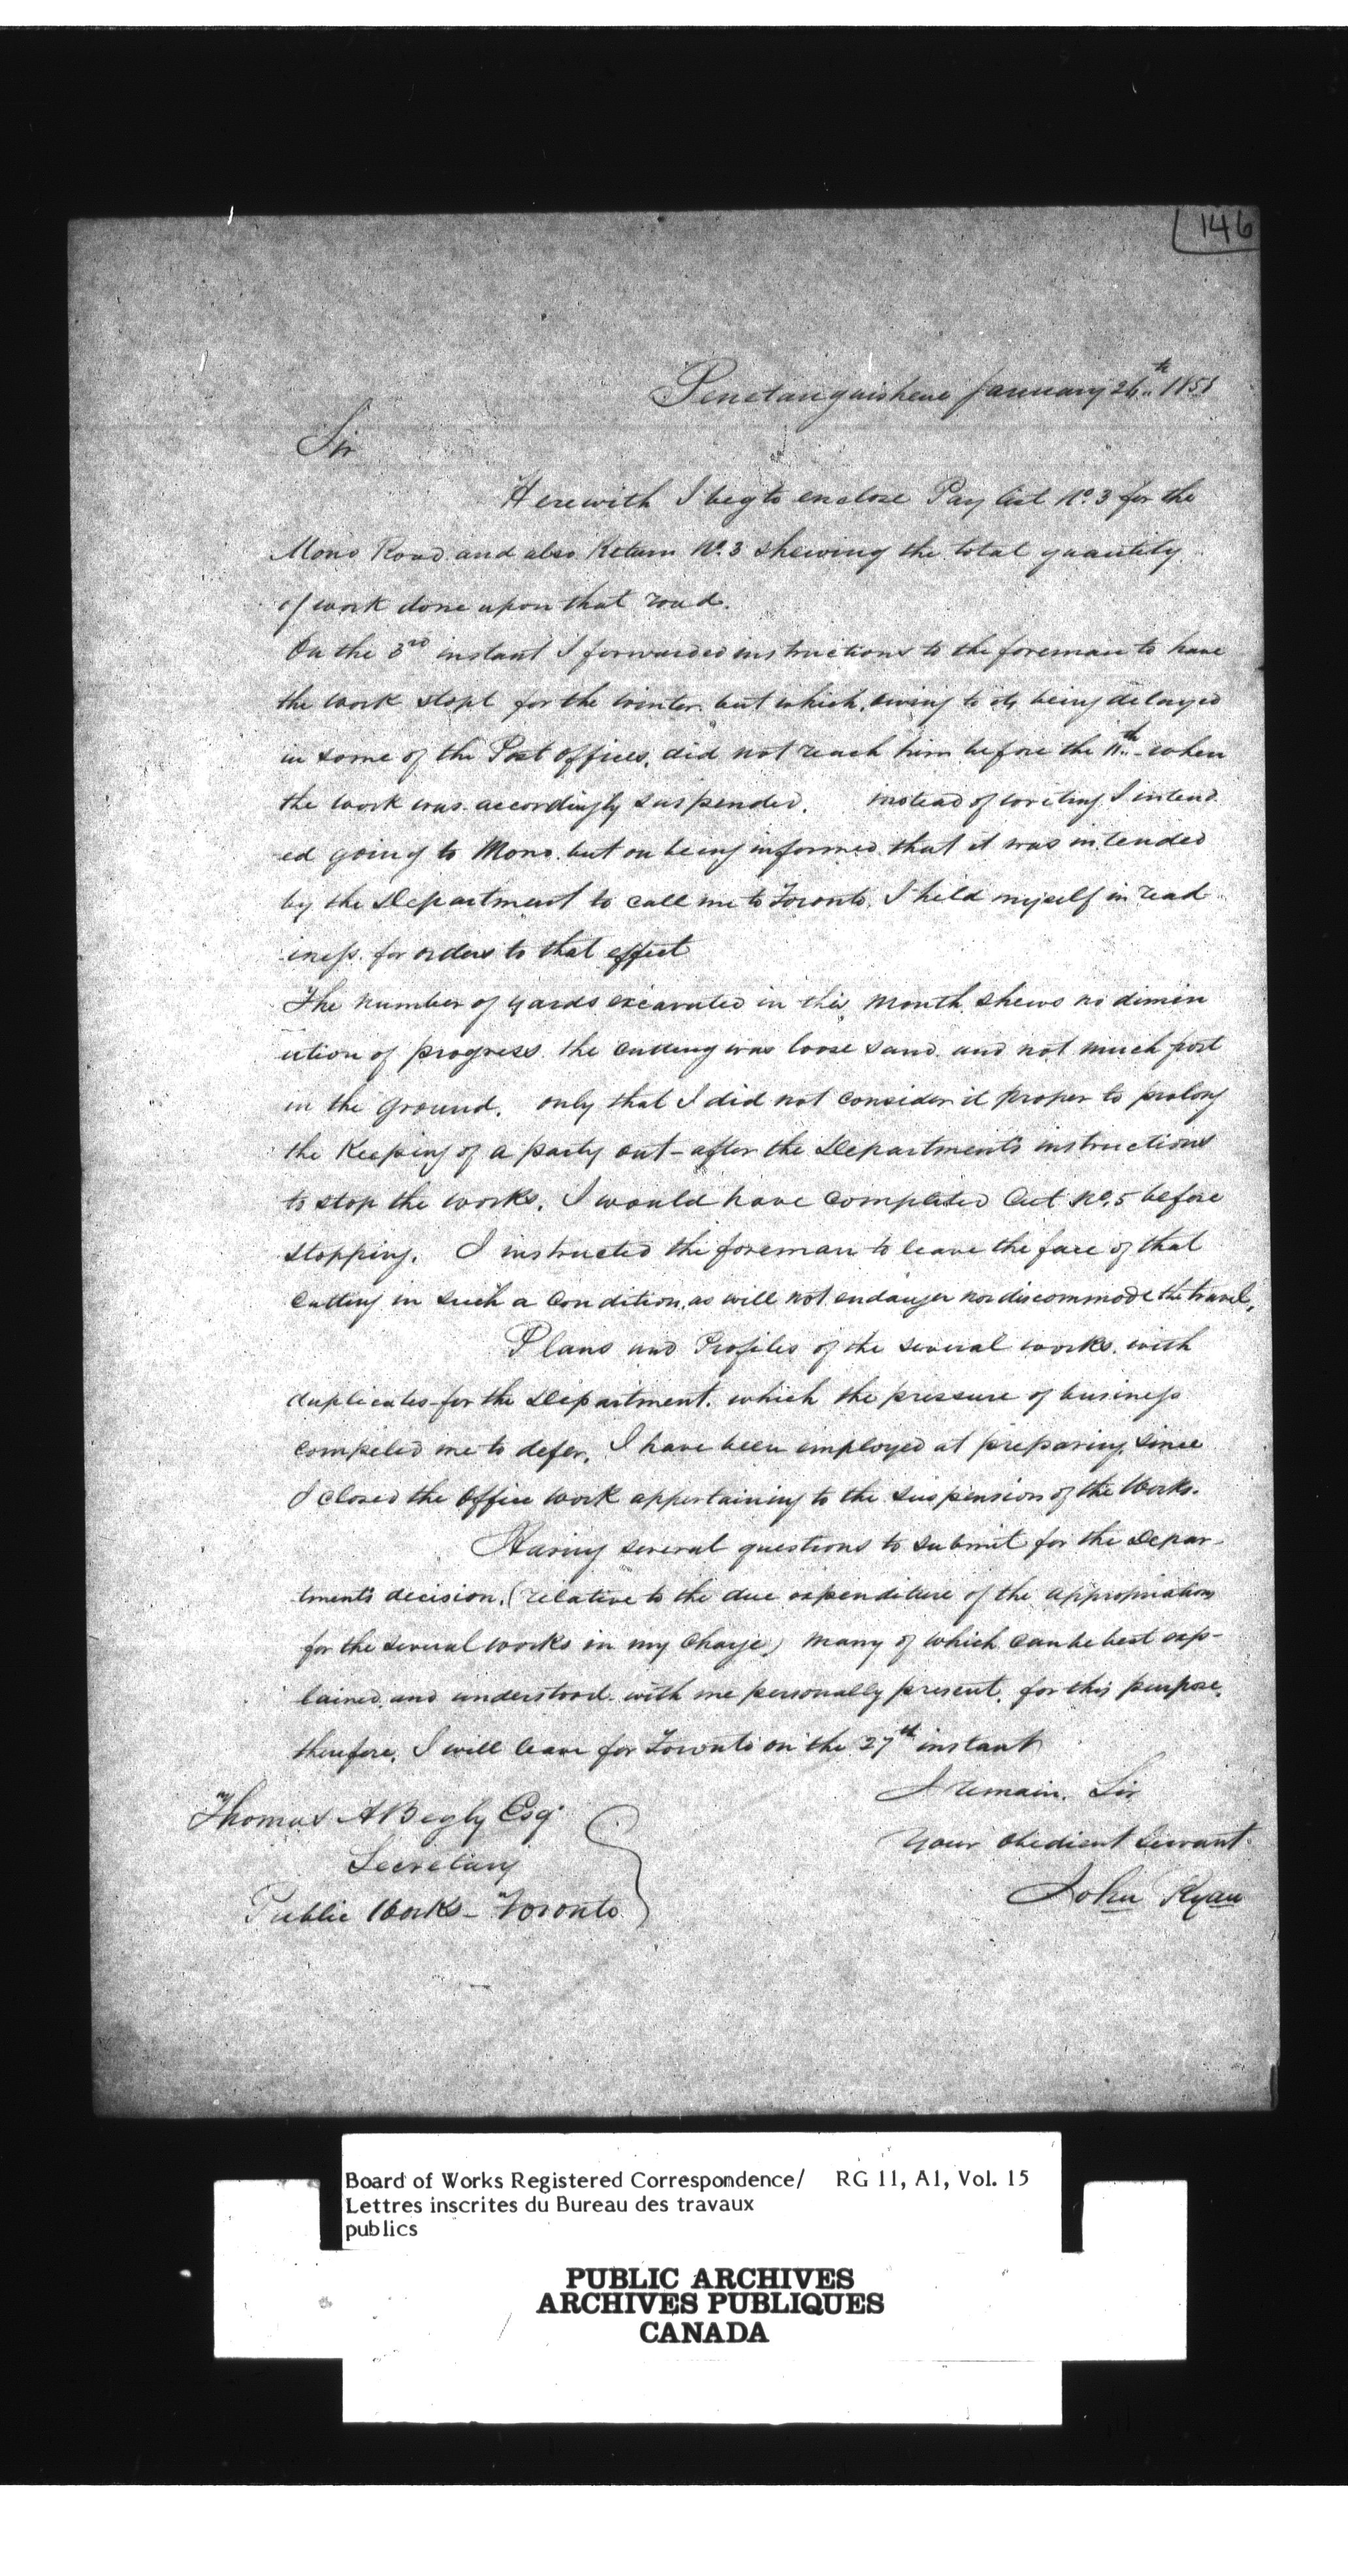 146
Penetanguishene January 26th 1851
Sir
Herewith I beg to enclose Pay list No. 3 for the
Mono Road and also Return No. 3 shewing the total quantity
of work done upon that road.
On the 3rd instant I forwarded instructions to the foreman to have
the work stopt for the winter but which, owing to its being delayed
in some of the Post Offices, did not reach him before the 11th when
the work was accordingly suspended. instead of writing I intend
ed going to Mono but on being informed that it was intended
by the Department to call me to Toronto. I held myself in read
iness for orders to that effect
The number of yards excavated in this month shews no dimin
ution of progress the cutting was loose sand and not much frost
in the ground. only that I did not consider it proper to prolong
the keeping of a party out - after the Department's instructions
to stop the works. I would have completed Cut No. 5 before
stopping. I instructed the foreman to leave the face of that
Cutting in such a condition as will not endanger nor discommode the travel.
Plans and Profiles of the several works with
duplicates for the Department. which the pressure of business
compeled me to defer. I have been employed at preparing since
I closed the Office work appertaining to the suspension of the Works.
Having several questions to submit for the Depar-
tments decision. (relative to the due expenditure of the appropriations
for the several works in my charge) many of which can be best exp-
lained and understood with me personally present, for this purpose,
therefore, I will leave for Toronto on the 27th instant
I remain Sir
Your obedient Servant
John Ryan
Thomas A Begly Esqr
Secretary
Public Works - Toronto
Board of Works Registered Correspondence/ RG 11, A1, Vol. 15
Lettres inscrites du Bureau des travaux
publics
PUBLIC ARCHIVES
ARCHIVES PUBLIQUES
CANADA